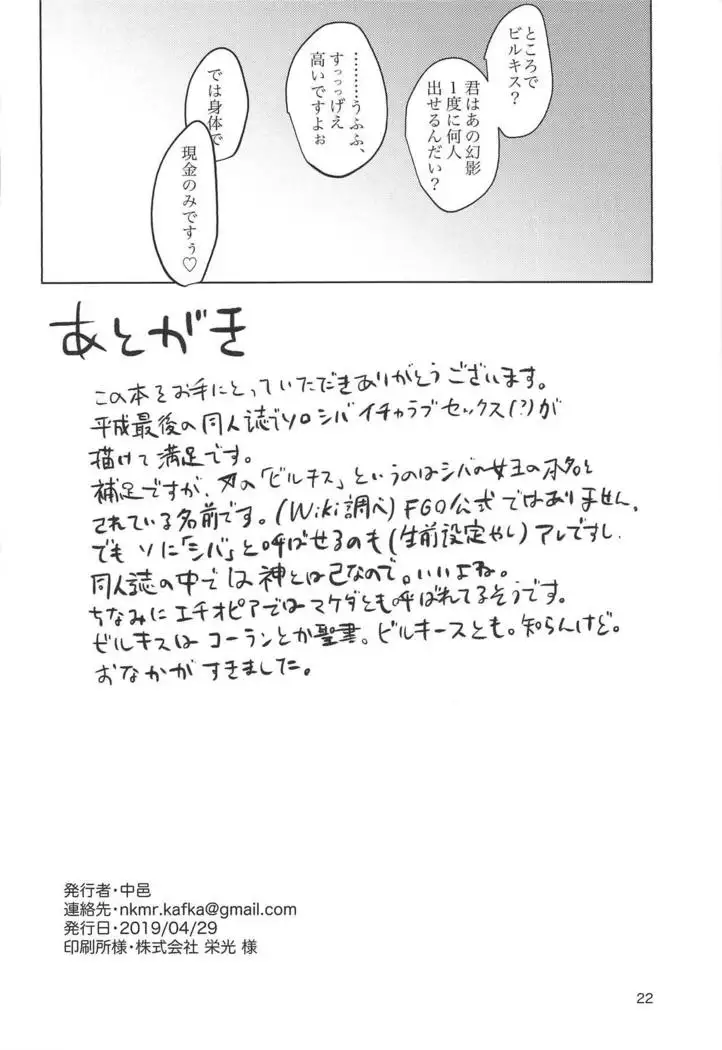 ところで
ビルキス?
君はあの幻影
1度に何人
出せるんだい?
………うふふ、
すっっっげえ
高いですよぉ
では身体で
現金のみですぅ♡
あとがき
この本をお手にとっていただきありがとうございます。
平成最後の同人誌でソロシバイチャラブセックス(?)が
描けて満足です。
補足ですが、の「ビルキス」というのはシバの女王の本名と
されている名前です。(Wiki調べ)FGO公式ではありません。
でもソに「シバ」と呼ばせるのも(生前設定やし)アレですし、
同人誌の中では神とは己なので。いいよね。
ちなみにエチオピアではマケダとも呼ばれてるそうです。
ビルキスはコーランとか聖書。ビルキースとも。知らんけど。
おなかがすきました。
発行者・中邑
連絡先・nkmr.kafka@gmail.com
発行日・2019/04/29
印刷所様・株式会社 栄光 様
22